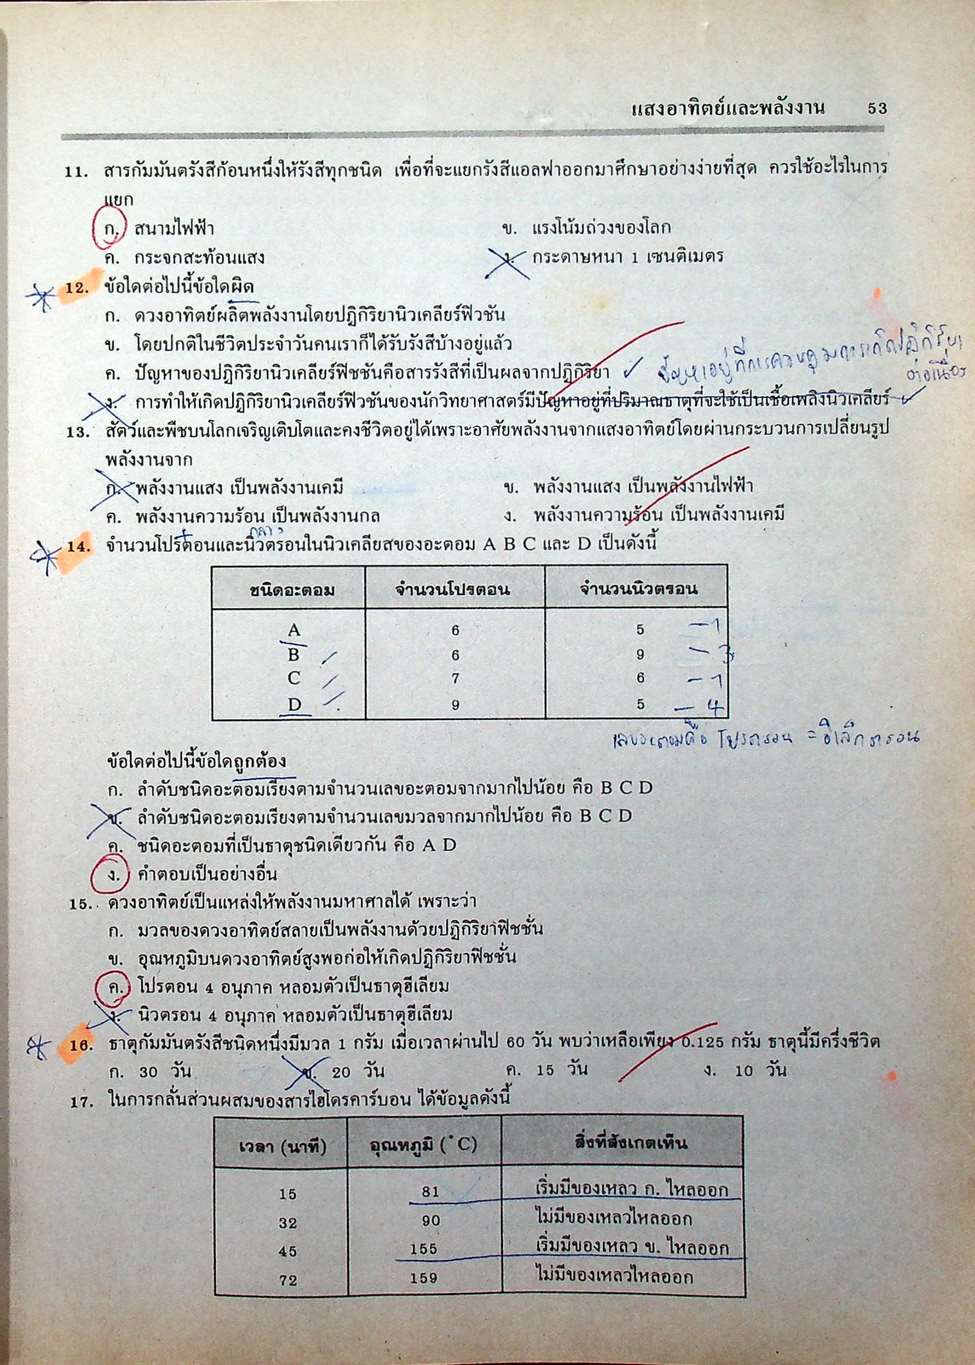 แสงอาทิตย์และพลังงาน 53
11. สารกัมมันตรังสีก้อนหนึ่งให้รังสีทุกชนิด เพื่อที่จะแยกรังสีแอลฟาออกมาศึกษาอย่างง่ายที่สุด ควรใช้อะไรในการ
แยก
ก. สนามไฟฟ้า ข. แรงโน้มถ่วงของโลก
ค. กระจกสะท้อนแสง ง. กระดาษหนา 1 เซนติเมตร
12. ข้อใดต่อไปนี้ข้อใดผิด
ก. ดวงอาทิตย์ผลิตพลังงานโดยปฏิกิริยานิวเคลียร์ฟิวชัน
ข. โดยปกติในชีวิตประจำวันคนเราก็ได้รับรังสีบ้างอยู่แล้ว
ค. ปัญหาของปฏิกิริยานิวเคลียร์ฟิชชันคือสารรังสีที่เป็นผลจากปฏิกิริยา ✓ ปัญหาอยู่ที่การควบคุมการเกิดปฏิกิริยา
ต่อเนื่อง
ง. การทำให้เกิดปฏิกิริยานิวเคลียร์ฟิวชันของนักวิทยาศาสตร์มีปัญหาอยู่ที่ปริมาณธาตุที่จะใช้เป็นเชื้อเพลิงนิวเคลียร์ ✓
13. สัตว์และพืชบนโลกเจริญเติบโตและคงชีวิตอยู่ได้เพราะอาศัยพลังงานจากแสงอาทิตย์โดยผ่านกระบวนการเปลี่ยนรูป
พลังงานจาก
ก. พลังงานแสง เป็นพลังงานเคมี ข. พลังงานแสง เป็นพลังงานไฟฟ้า
ค. พลังงานความร้อน เป็นพลังงานกล ง. พลังงานความร้อน เป็นพลังงานเคมี
+ กลาง
14. จำนวนโปรตอนและนิวตรอนในนิวเคลียสของอะตอม A B C และ D เป็นดังนี้
ชนิดอะตอม จำนวนโปรตอน จำนวนนิวตรอน
A 6 5 -1
B 6 9 - 3
C 7 6 -1
D 9 5 - 4
เลขอะตอมคือ โปรตรอน = อิเล็กตรอน
ข้อใดต่อไปนี้ข้อใดถูกต้อง
ก. ลำดับชนิดอะตอมเรียงตามจำนวนเลขอะตอมจากมากไปน้อย คือ B C D
ข. ลำดับชนิดอะตอมเรียงตามจำนวนเลขมวลจากมากไปน้อย คือ B C D
ค. ชนิดอะตอมที่เป็นธาตุชนิดเดียวกัน คือ A D
ง. คำตอบเป็นอย่างอื่น
15. ดวงอาทิตย์เป็นแหล่งให้พลังงานมหาศาลได้ เพราะว่า
ก. มวลของดวงอาทิตย์สลายเป็นพลังงานด้วยปฏิกิริยาฟิชชั่น
ข. อุณหภูมิบนดวงอาทิตย์สูงพอก่อให้เกิดปฏิกิริยาฟิชชั่น
ค. โปรตอน 4 อนุภาค หลอมตัวเป็นธาตุฮีเลียม
ง. นิวตรอน 4 อนุภาค หลอมตัวเป็นธาตุฮีเลียม
16. ธาตุกัมมันตรังสีชนิดหนึ่งมีมวล 1 กรัม เมื่อเวลาผ่านไป 60 วัน พบว่าเหลือเพียง 0.125 กรัม ธาตุนี้มีครึ่งชีวิต
ก. 30 วัน ข. 20 วัน ค. 15 วัน ง. 10 วัน
17. ในการกลั่นส่วนผสมของสารไฮโดรคาร์บอน ได้ข้อมูลดังนี้
เวลา (นาที) อุณหภูมิ (°C) สิ่งที่สังเกตเห็น
15 81 เริ่มมีของเหลว ก. ไหลออก
32 90 ไม่มีของเหลวไหลออก
45 155 เริ่มมีของเหลว ข. ไหลออก
72 159 ไม่มีของเหลวไหลออก